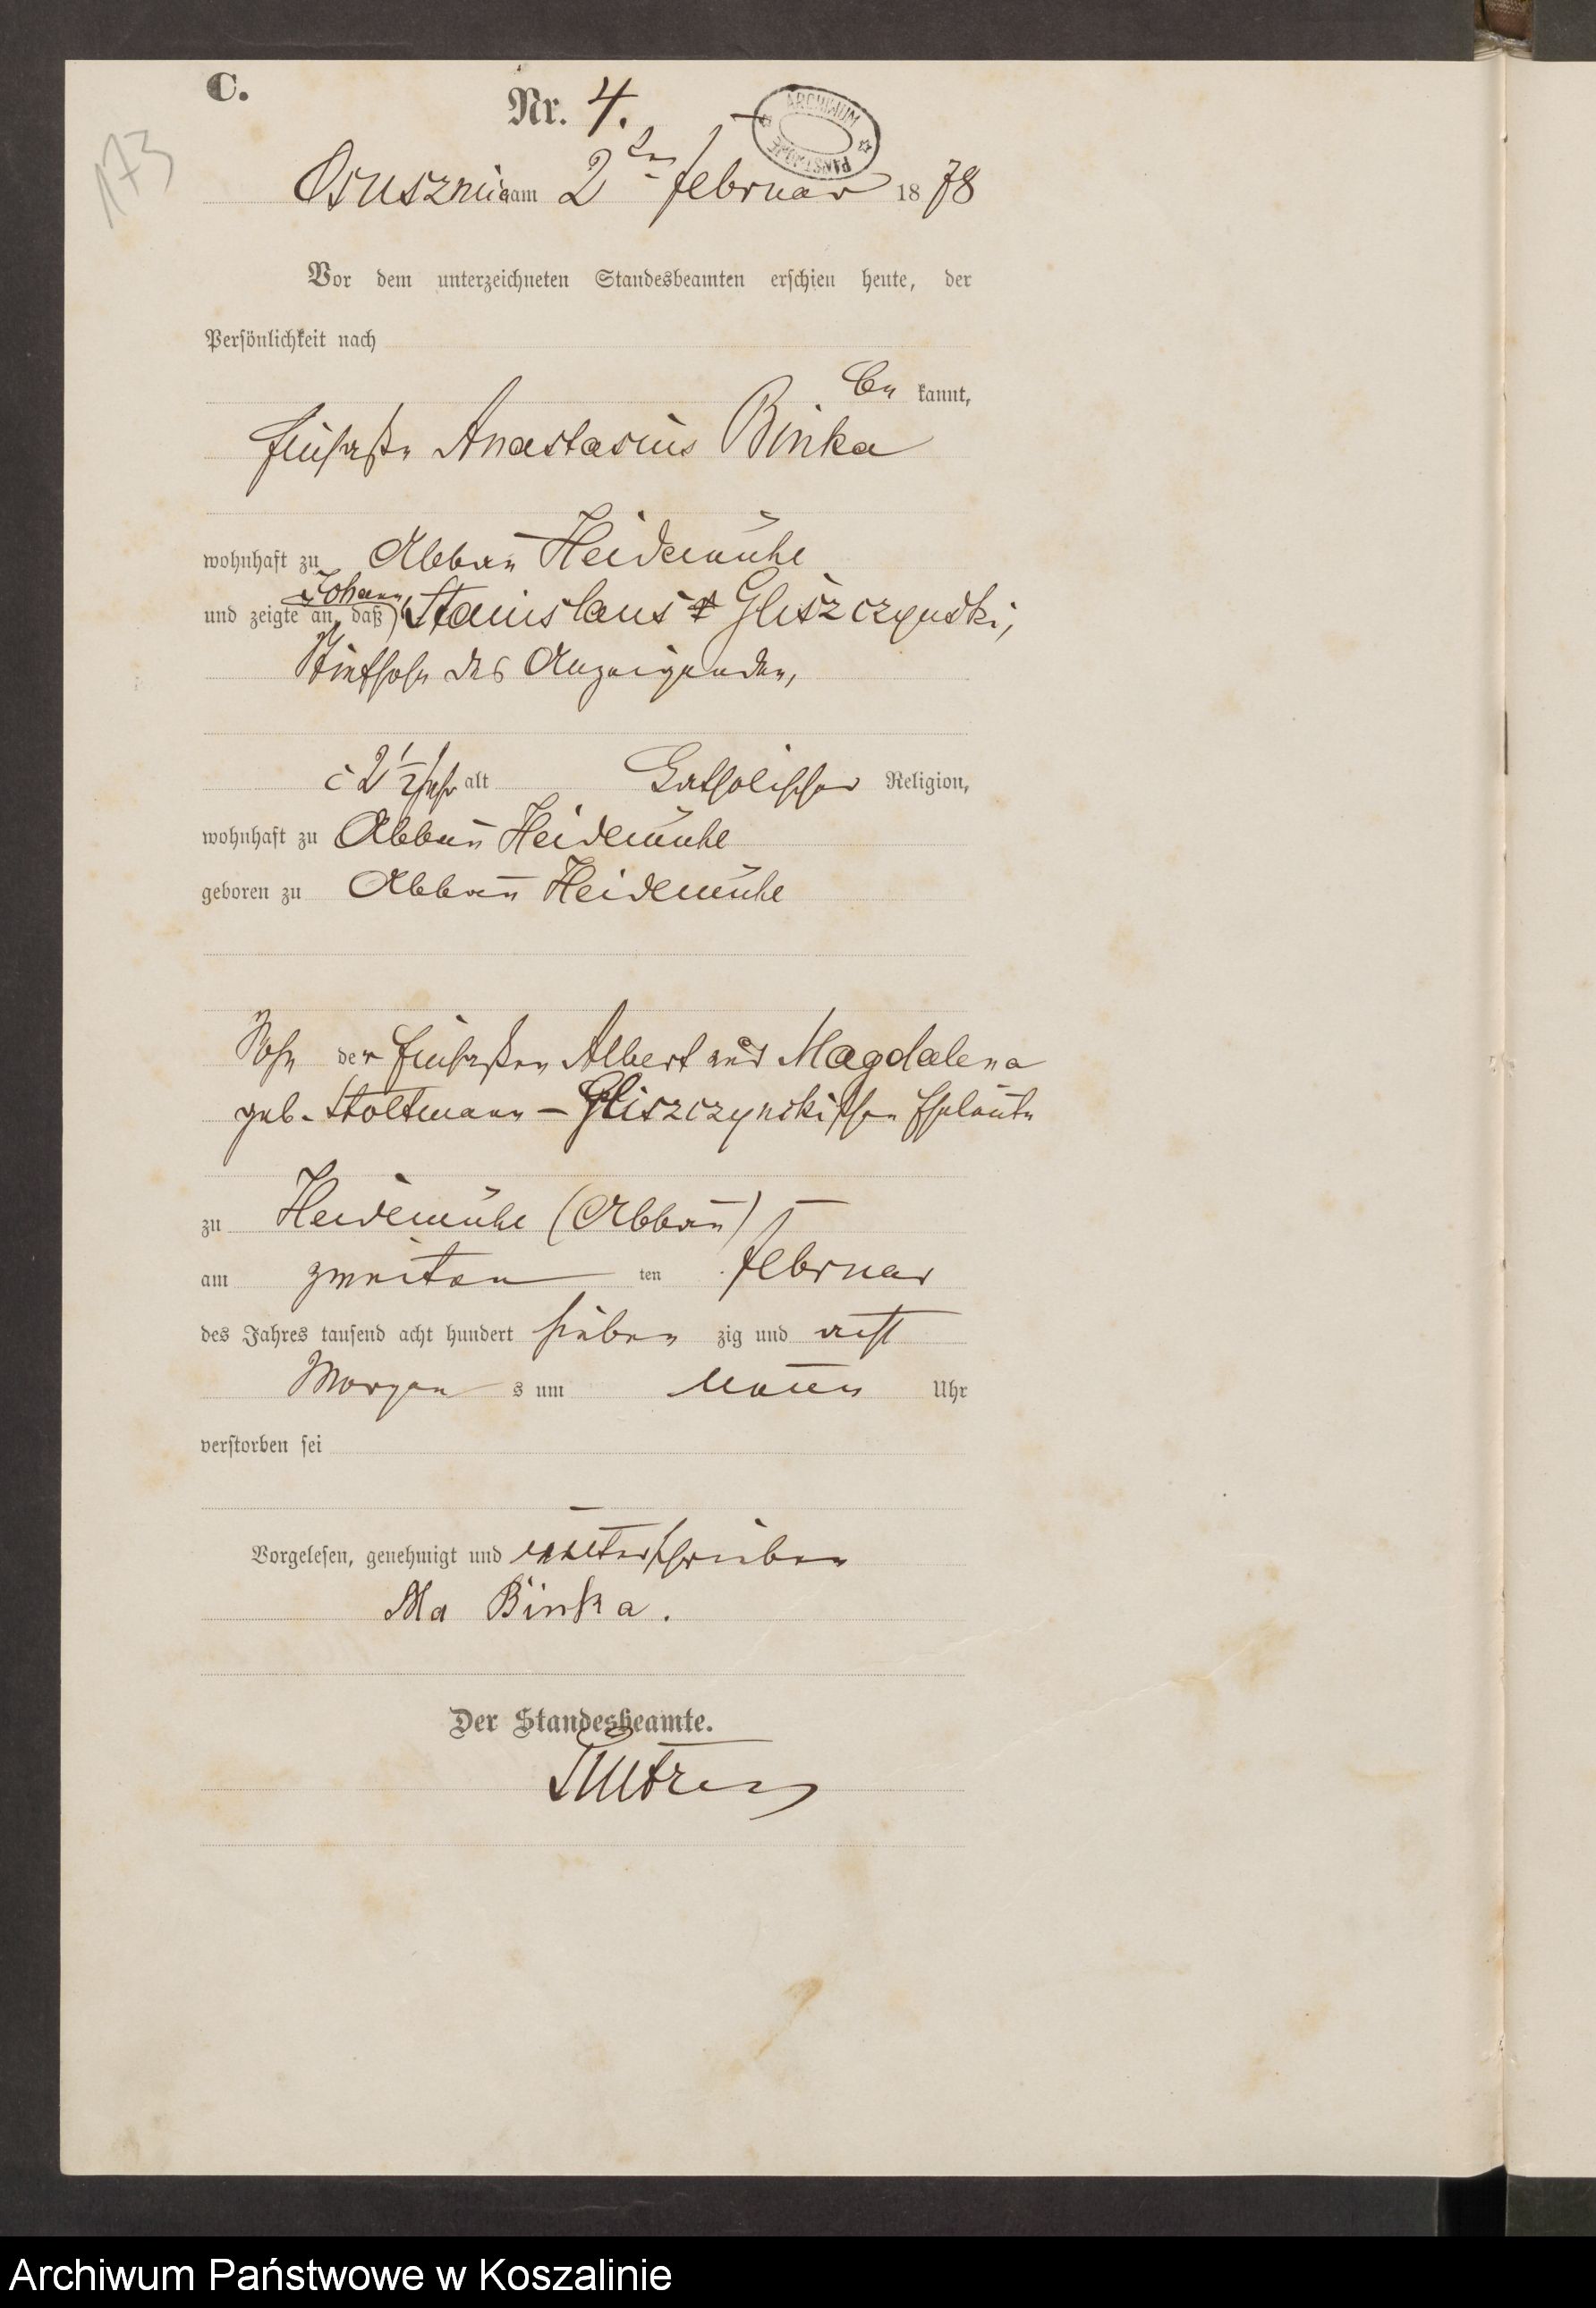 C.
Nr. 4.
ARCHIWUM PAŃSTWOWE
173
Osusznica am 2ten Februar 1878
Vor dem unterzeichneten Standesbeamten erschien heute, der
Persönlichkeit nach
be kannt,
Einsaße Anastasius Binka
wohnhaft zu Abbau Heidemühle
und zeigte an, daß Johann Stanislaus Gliszczynski,
Stiefsohn des Anzeigenden,
c 2 1/2 Jahr alt Catholischer Religion,
wohnhaft zu Abbau Heidemühle
geboren zu Abbau Heidemühle
Sohn der Einsaßen Albert und Magdalena
geb. Stoltmann - Gliszczynskischen Eheleute
zu Heidemühle (Abbau)
am zweiten ten Februar
des Jahres tausend acht hundert sieben zig und acht
Morgen s um Neun Uhr
verstorben sei
Vorgelesen, genehmigt und unterschrieben
Binka.
Der Standesbeamte.
Archiwum Państwowe w Koszalinie